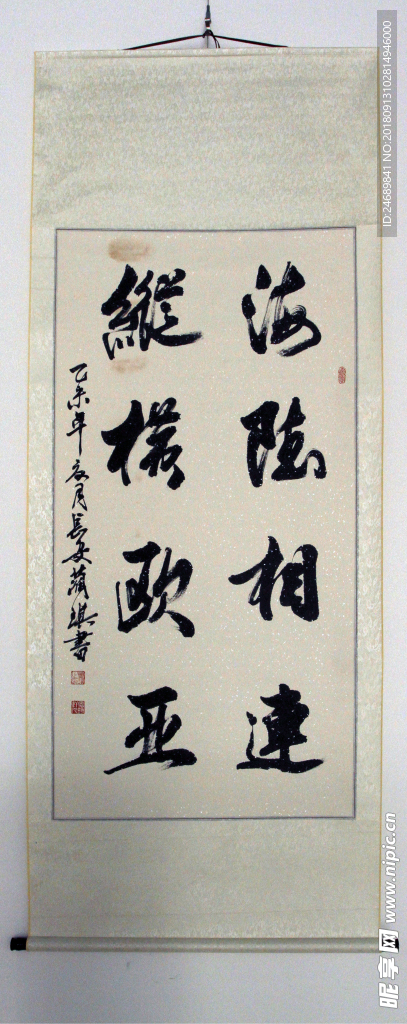 海陆相連
縱横欧亚
乙未年夏月長安
書
ID:24689841 NO:20180913102814946000
昵享网 www.nipic.cn